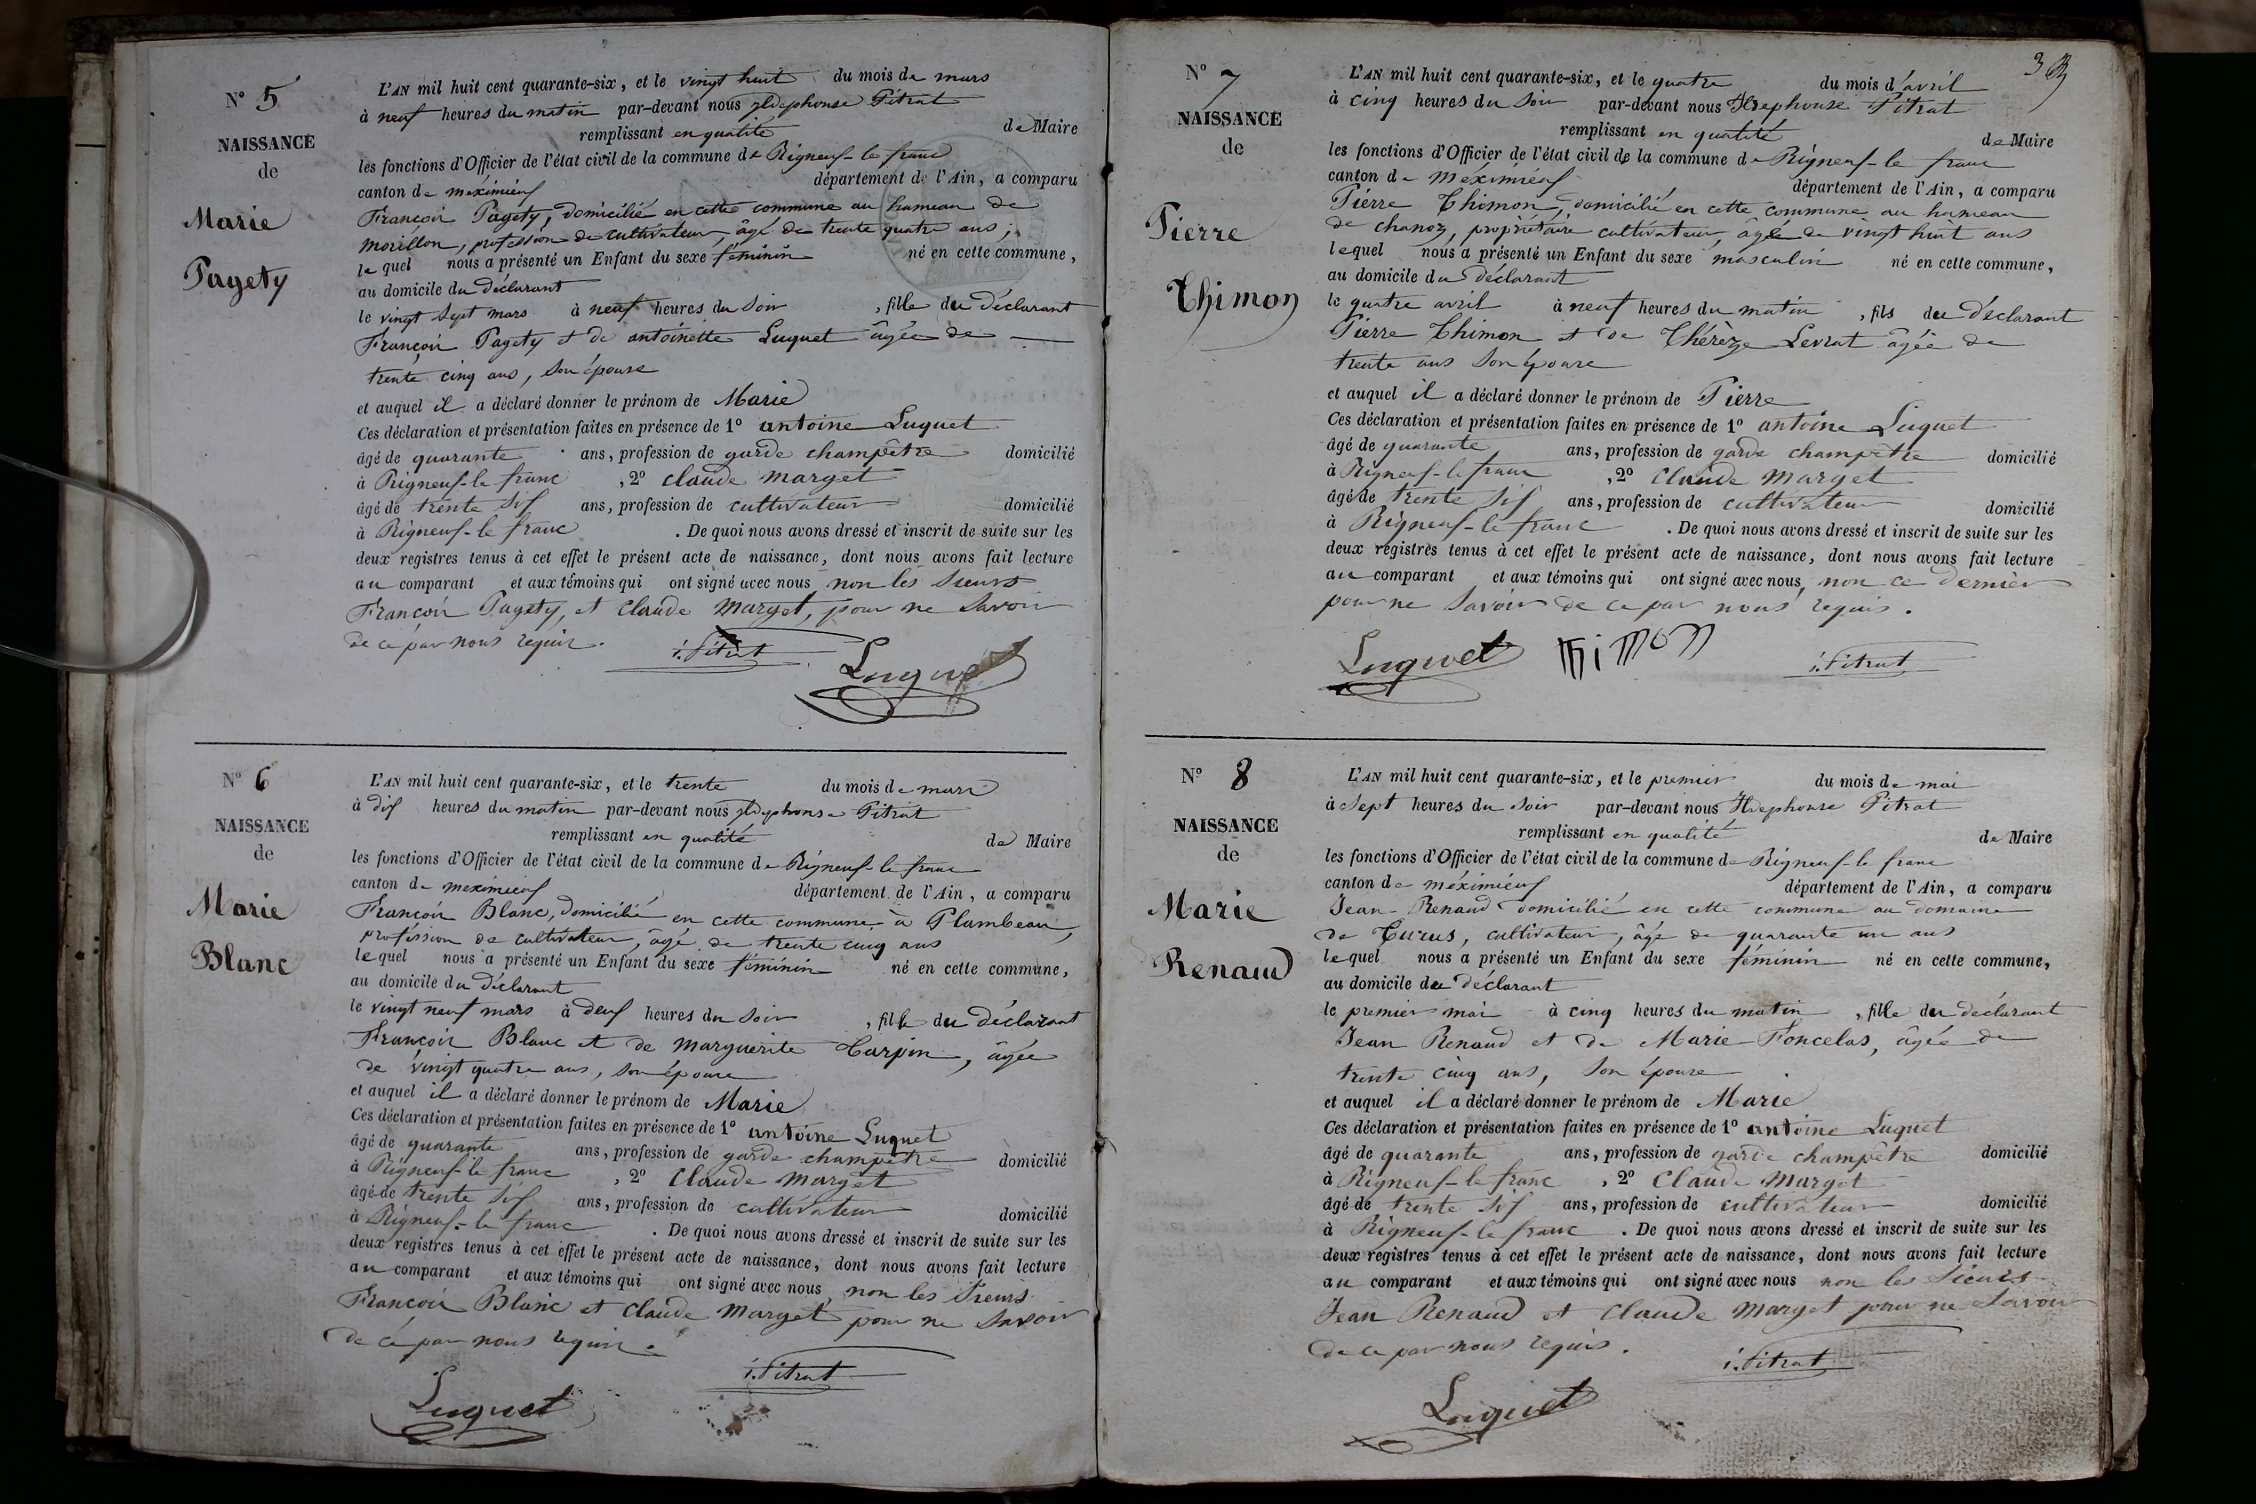 N° 5
NAISSANCE
de
Marie
Pagety
L'AN mil huit cent quarante-six, et le vingt huit du mois de mars
à neuf heures du matin par-devant nous yldephonse Pitrat
remplissant en qualité de Maire
les fonctions d'Officier de l'état civil de la commune de Rigneux-le franc
canton de meximieux département de l'Ain, a comparu
François Pagety, domicilié en cette commune au hameau de
morillon, profession de cultivateur, âgé de trente quatre ans,
le quel nous a présenté un Enfant du sexe féminin né en cette commune,
au domicile du déclarant
le vingt sept mars à neuf heures du soir, fille du déclarant
François Pagety et de antoinette Luquet âgée de
trente cinq ans, son épouse
et auquel il a déclaré donner le prénom de Marie
Ces déclaration et présentation faites en présence de 1° antoine Luquet
âgé de quarante ans, profession de garde champêtre domicilié
à Rigneux-le franc, 2° claude marget
âgé de trente six ans, profession de cultivateur domicilié
à Rigneux-le franc. De quoi nous avons dressé et inscrit de suite sur les
deux registres tenus à cet effet le présent acte de naissance, dont nous avons fait lecture
au comparant et aux témoins qui ont signé avec nous non les sieurs
François Pagety, et claude marget, pour ne savoir
de ce par nous requis.
i. Pitrat
Luquet
N° 6
NAISSANCE
de
Marie
Blanc
L'AN mil huit cent quarante-six, et le trente du mois de mars
à dix heures du matin par-devant nous yldephonse Pitrat
remplissant en qualité de Maire
les fonctions d'Officier de l'état civil de la commune de Rigneux-le franc
canton de meximieux département de l'Ain, a comparu
François Blanc, domicilié en cette commune à Plambeau,
profession de cultivateur, âgé de trente cinq ans
le quel nous a présenté un Enfant du sexe féminin né en cette commune,
au domicile du déclarant
le vingt neuf mars à deux heures du soir, fille du déclarant
François Blanc et de marguerite Carpin, âgée
de vingt quatre ans, son épouse
et auquel il a déclaré donner le prénom de Marie
Ces déclaration et présentation faites en présence de 1° antoine Luquet
âgé de quarante ans, profession de garde champêtre domicilié
à Rigneux-le franc, 2° Claude marget
âgé de trente six ans, profession de cultivateur domicilié
à Rigneux-le franc. De quoi nous avons dressé et inscrit de suite sur les
deux registres tenus à cet effet le présent acte de naissance, dont nous avons fait lecture
au comparant et aux témoins qui ont signé avec nous, non les sieurs
François Blanc et claude marget pour ne savoir
de ce par nous requis.
i. Pitrat
Luquet
3
N° 7
NAISSANCE
de
Pierre
Thimon
L'AN mil huit cent quarante-six, et le quatre du mois d'avril
à cinq heures du soir par-devant nous Ildephonse Pitrat
remplissant en qualité de Maire
les fonctions d'Officier de l'état civil de la commune de Rigneux-le franc
canton de méximieux département de l'Ain, a comparu
Pierre Thimon, domicilié en cette commune au hameau
de chanoz, propriétaire cultivateur, âgé de vingt huit ans
lequel nous a présenté un Enfant du sexe masculin né en cette commune,
au domicile du déclarant
le quatre avril à neuf heures du matin, fils du déclarant
Pierre Thimon et de Thérèze Levrat âgée de
trente ans son épouse
et auquel il a déclaré donner le prénom de Pierre
Ces déclaration et présentation faites en présence de 1° antoine Luquet
âgé de quarante ans, profession de garde champêtre domicilié
à Rigneux-le franc, 2° Claude marget
âgé de trente six ans, profession de cultivateur domicilié
à Rigneux-le franc. De quoi nous avons dressé et inscrit de suite sur les
deux registres tenus à cet effet le présent acte de naissance, dont nous avons fait lecture
au comparant et aux témoins qui ont signé avec nous, non ce dernier
pour ne savoir de ce par nous requis.
Luquet THiMON i. Pitrat
N° 8
NAISSANCE
de
Marie
Renaud
L'AN mil huit cent quarante-six, et le premier du mois de mai
à sept heures du soir par-devant nous Ildephonse Pitrat
remplissant en qualité de Maire
les fonctions d'Officier de l'état civil de la commune de Rigneux-le franc
canton de méximieux département de l'Ain, a comparu
Jean Renaud domicilié en cette commune au domaine
de , cultivateur, âgé de quarante un ans
lequel nous a présenté un Enfant du sexe féminin né en cette commune,
au domicile du déclarant
le premier mai à cinq heures du matin, fille du déclarant
Jean Renaud et de Marie Foncelas, âgée de
trente cinq ans, son épouse
et auquel il a déclaré donner le prénom de Marie
Ces déclaration et présentation faites en présence de 1° antoine Luquet
âgé de quarante ans, profession de garde champêtre domicilié
à Rigneux-le franc, 2° Claude marget
âgé de trente six ans, profession de cultivateur domicilié
à Rigneux-le franc. De quoi nous avons dressé et inscrit de suite sur les
deux registres tenus à cet effet le présent acte de naissance, dont nous avons fait lecture
au comparant et aux témoins qui ont signé avec nous non les sieurs
Jean Renaud et claude marget pour ne savoir
de ce par nous requis.
i. Pitrat
Luquet